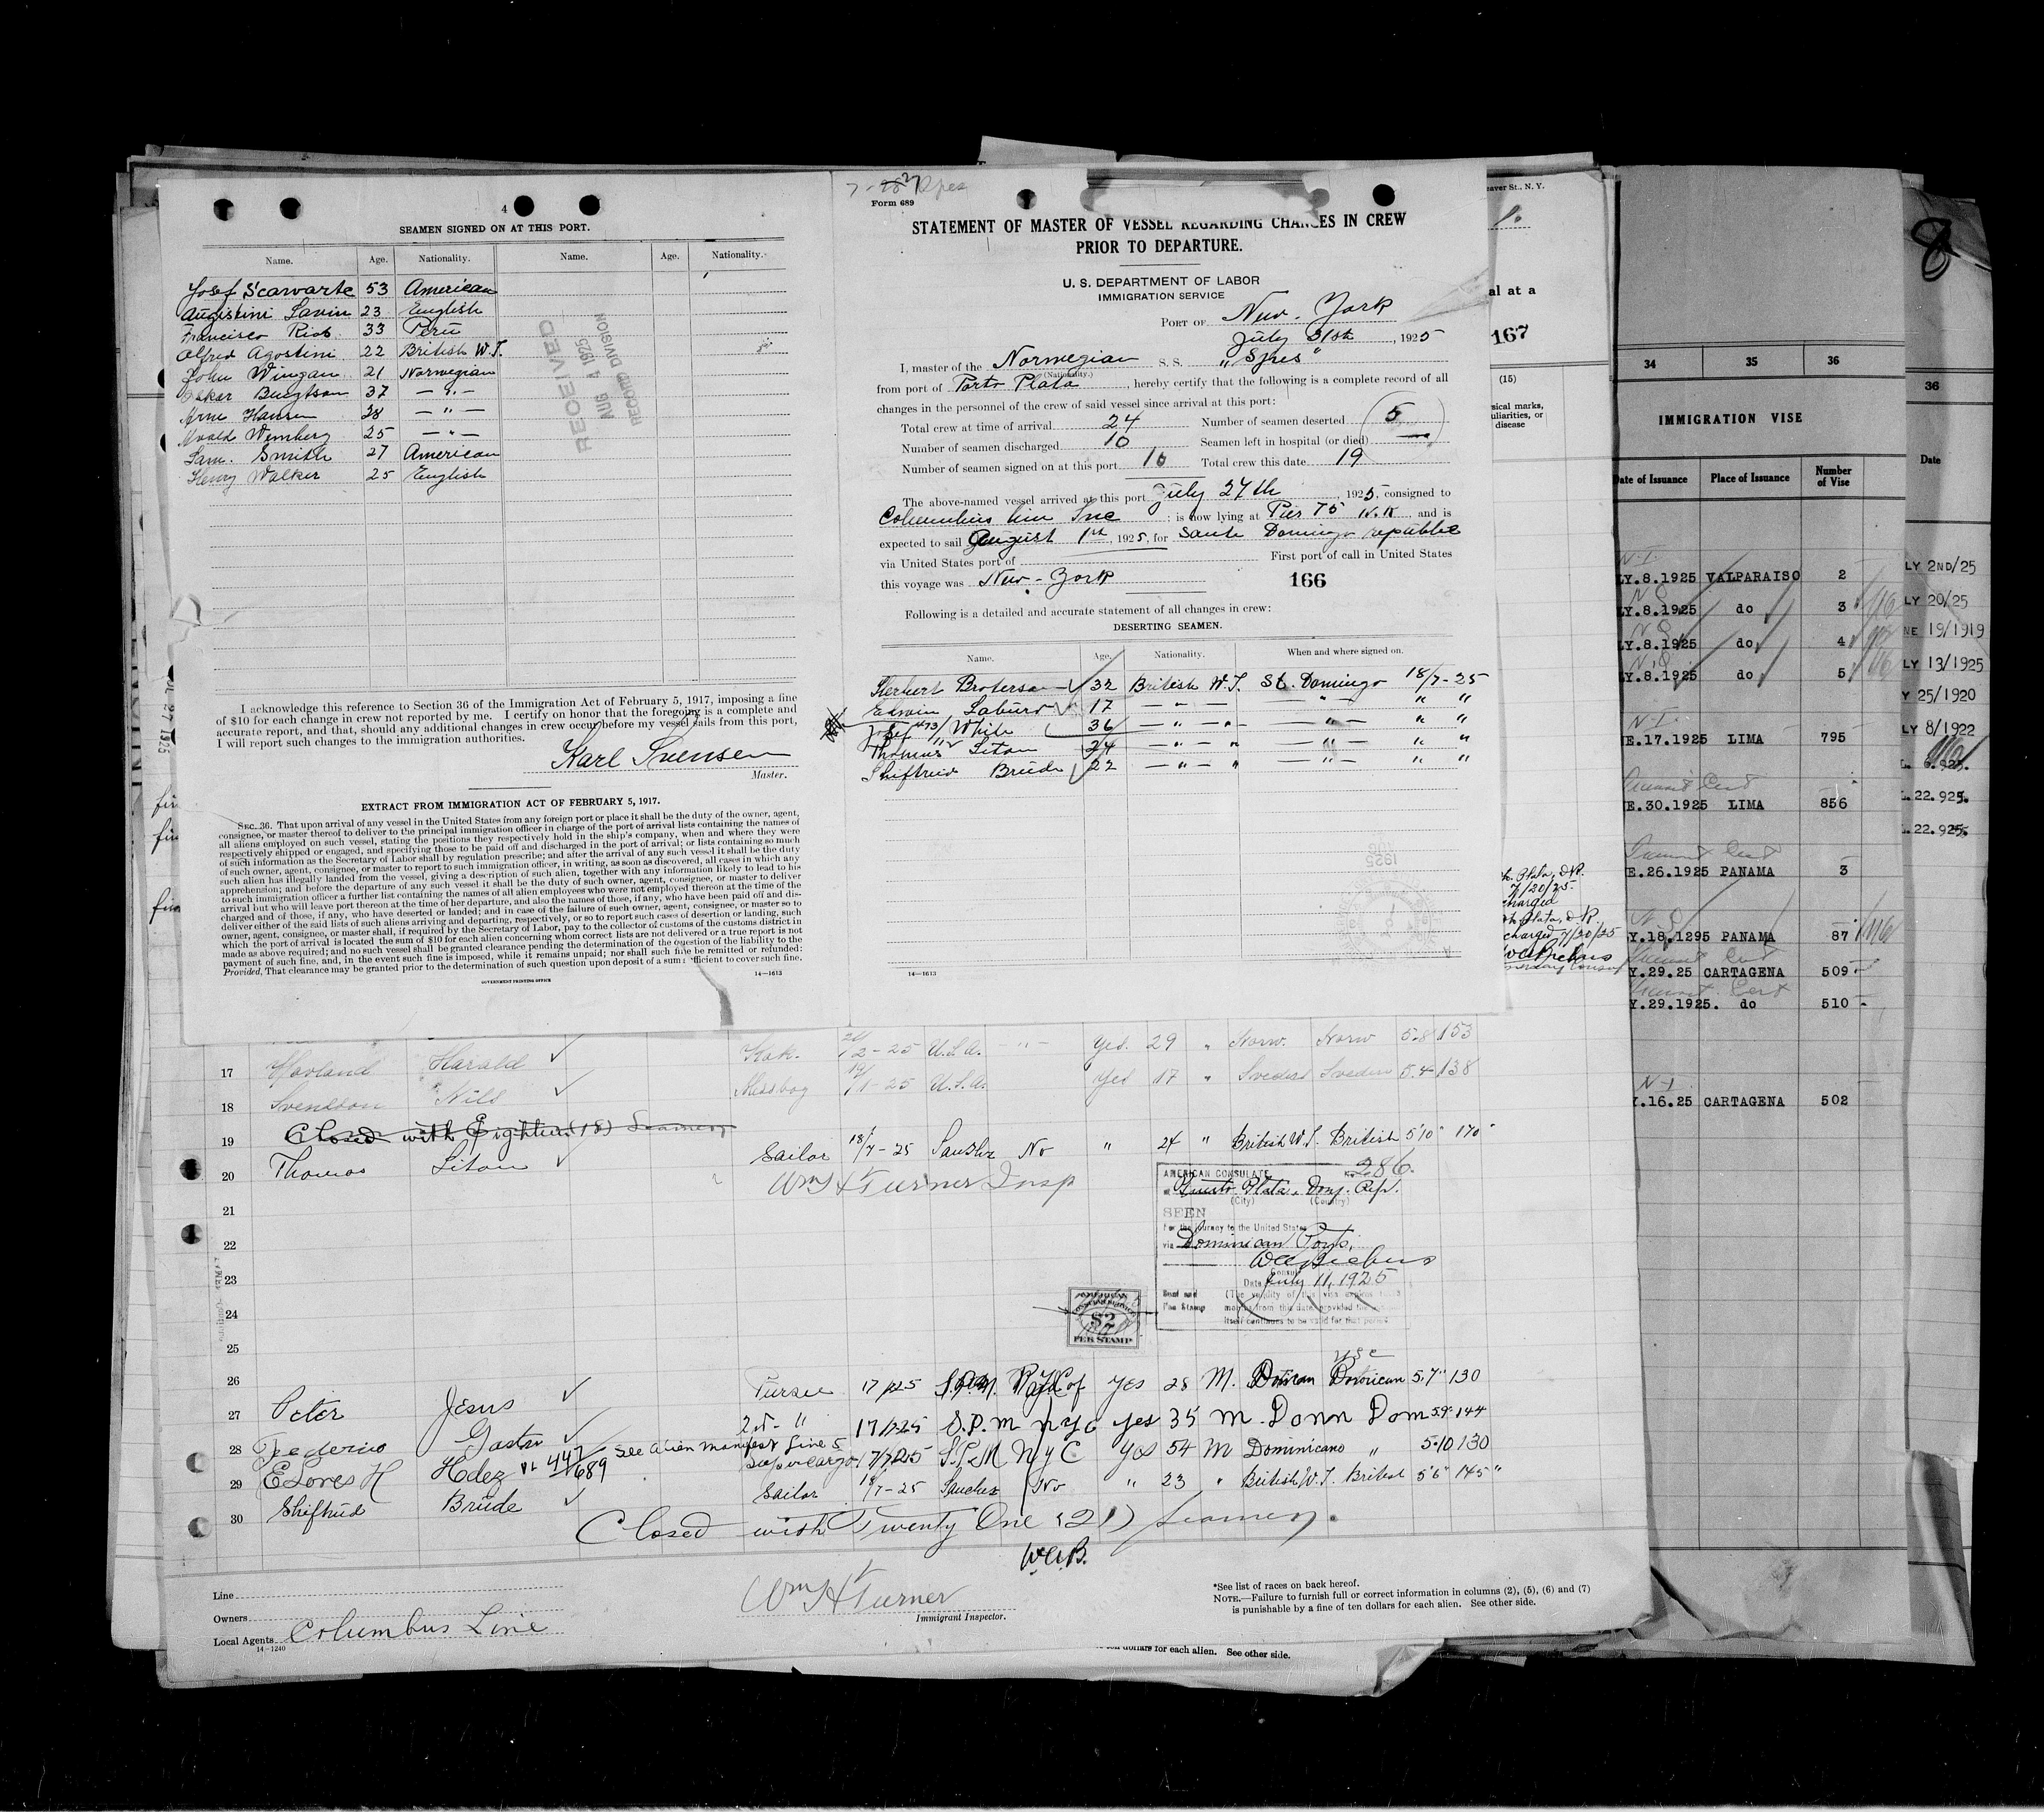 4
SEAMEN SIGNED ON AT THIS PORT.
Name. Age. Nationality. Name. Age. Nationality.
Josef Scawarte 53 American
Augistini Lavin 23 English
Francisco Rios 33 Peru
Alfred Agostini 22 British W.I.
John Wingan 21 Norwegian
Oskar Bengtson 37 — " —
Arne Hansen 28 — " —
Wemberg 25 — " —
Sam. Smith 27 American
Henry Walker 25 English
RECEIVED
AUG 4 1925
RECORD DIVISION
I acknowledge this reference to Section 36 of the Immigration Act of February 5, 1917, imposing a fine
of $10 for each change in crew not reported by me. I certify on honor that the foregoing is a complete and
accurate report, and that, should any additional changes in crew occur before my vessel sails from this port,
I will report such changes to the immigration authorities.
Karl Svensen
Master.
EXTRACT FROM IMMIGRATION ACT OF FEBRUARY 5, 1917.
SEC. 36. That upon arrival of any vessel in the United States from any foreign port or place it shall be the duty of the owner, agent,
consignee, or master thereof to deliver to the principal immigration officer in charge of the port of arrival lists containing the names of
all aliens employed on such vessel, stating the positions they respectively hold in the ship's company, when and where they were
respectively shipped or engaged, and specifying those to be paid off and discharged in the port of arrival; or lists containing so much
of such information as the Secretary of Labor shall by regulation prescribe; and after the arrival of any such vessel it shall be the duty
of such owner, agent, consignee, or master to report to such immigration officer, in writing, as soon as discovered, all cases in which any
such alien has illegally landed from the vessel, giving a description of such alien, together with any information likely to lead to his
apprehension; and before the departure of any such vessel it shall be the duty of such owner, agent, consignee, or master to deliver
to such immigration officer a further list containing the names of all alien employees who were not employed thereon at the time of the
arrival but who will leave port thereon at the time of her departure, and also the names of those, if any, who have been paid off and dis-
charged and of those, if any, who have deserted or landed; and in case of the failure of such owner, agent, consignee, or master so to
deliver either of the said lists of such aliens arriving and departing, respectively, or so to report such cases of desertion or landing, such
owner, agent, consignee, or master shall, if required by the Secretary of Labor, pay to the collector of customs of the customs district in
which the port of arrival is located the sum of $10 for each alien concerning whom correct lists are not delivered or a true report is not
made as above required; and no such vessel shall be granted clearance pending the determination of the question of the liability to the
payment of such fine, and, in the event such fine is imposed, while it remains unpaid; nor shall such fine be remitted or refunded:
Provided, That clearance may be granted prior to the determination of such question upon deposit of a sum sufficient to cover such fine.
GOVERNMENT PRINTING OFFICE
14—1613
Form 689
STATEMENT OF MASTER OF VESSEL REGARDING CHANGES IN CREW
PRIOR TO DEPARTURE.
U. S. DEPARTMENT OF LABOR
IMMIGRATION SERVICE
PORT OF New-York
July 31st, 1925
I, master of the Norwegian S. S. "Spes"
(Nationality.)
from port of Porto Plata, hereby certify that the following is a complete record of all
changes in the personnel of the crew of said vessel since arrival at this port:
Total crew at time of arrival 24 Number of seamen deserted 5
Number of seamen discharged 10 Seamen left in hospital (or died) —
Number of seamen signed on at this port 10 Total crew this date 19
The above-named vessel arrived at this port July 27th, 1925, consigned to
Columbus Line Inc; is now lying at Pier 75 N.R and is
expected to sail August 1st, 1925, for Santo Domingo republic
via United States port of First port of call in United States
this voyage was New-York
166
Following is a detailed and accurate statement of all changes in crew:
DESERTING SEAMEN.
Name. Age. Nationality. When and where signed on.
Herbert Broterson 32 British W.I. St. Domingo 18/7-25
Edwin Laburd 17 — " — — " — " "
Josef White 36 — " — " — " — " "
Thomas Liton 24 — " — " — " — " "
Shiftrud Brude 22 — " — " — " — " "
14—1613
eaver St., N. Y.
al at a
167
(15)
sical marks,
uliarities, or
disease
34 35 36
IMMIGRATION VISE
Date of Issuance Place of Issuance Number of Vise
LY.8.1925 VALPARAISO 2
LY.8.1925 do 3
LY.8.1925 do 4
LY.8.1925 do 5
E.17.1925 LIMA 795
E.30.1925 LIMA 856
E.26.1925 PANAMA 3
Y.18.1295 PANAMA 87
Y.29.25 CARTAGENA 509
Y.29.1925. do 510
Y.16.25 CARTAGENA 502
8
36
Date
LY 2ND/25
LY 20/25
NE 19/1919
LY 13/1925
Y 25/1920
LY 8/1922
L. 6.925.
L.22.925.
L.22.925.
Plata, D.R.
7/20/25.
charged
Plata, D.R.
charged 7/20/25
17 Havland Harald Kok. 2-25 U.S.A. — " — Yes. 29 " Norw. Norw 5.8 153
18 Svendson Nils Messboy 19/1-25 U.S.A. Yes 17 " Swedish Sweden 5.4 138
19 Closed with Eighteen (18) Seamen
20 Thomas Liton Sailor 18/7-25 Sanchez No " 24 " British W.I. British 5'10" 170"
Wm H Turner Insp
21
22
23
24
25
AMERICAN CONSULATE No 286.
at Puerto Plata, Dom. Rep.
(City) (Country)
SEEN
For the journey to the United States
via Dominican Ports,
Consul
Date July 11, 1925
(The validity of this visa expires
months from this date provided the
itself continues to be valid for that period
Fee Stamp
AMERICAN
$2
FEE STAMP
26
27 Peter Jesus Purser 17/7 25 S.P.M. Yes 28 M. Dominican 5.7" 130
28 Federico Gastro 2d- " 17/7-25 S.P.M NYC Yes 35 M. Dom Dom 5.9" 144
29 ELores H Hdez 447/689 See Alien Manifest Line 5 Supercargo 17/7 25 S.P.M NYC Yes 54 M Dominicano " 5.10 130
30 Shiftrud Brude Sailor 18/7-25 Sanchez No " 23 " British W.I. British 5'6" 145"
Closed with Twenty One (21) Seamen.
W.A.B.
Line
Owners
Local Agents Columbus Line
14-1240
Wm H Turner
Immigrant Inspector.
*See list of races on back hereof.
NOTE.—Failure to furnish full or correct information in columns (2), (5), (6) and (7)
is punishable by a fine of ten dollars for each alien. See other side.
dollars for each alien. See other side.